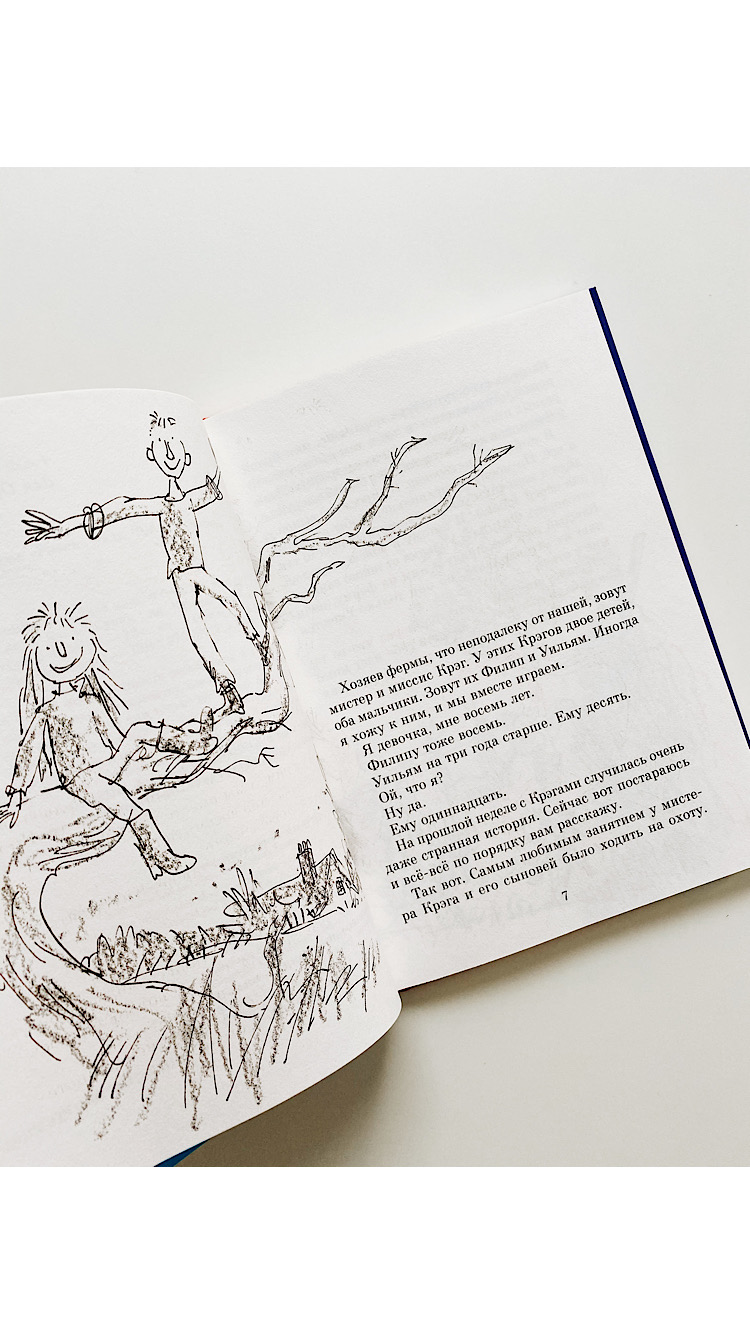 Хозяев фермы, что неподалеку от нашей, зовут
мистер и миссис Крэг. У этих Крэгов двое детей,
оба мальчики. Зовут их Филип и Уильям. Иногда
я хожу к ним, и мы вместе играем.
Я девочка, мне восемь лет.
Филипу тоже восемь.
Уильям на три года старше. Ему десять.
Ой, что я?
Ну да.
Ему одиннадцать.
На прошлой неделе с Крэгами случилась очень
даже странная история. Сейчас вот постараюсь
и всё-всё по порядку вам расскажу.
Так вот. Самым любимым занятием у мисте-
ра Крэга и его сыновей было ходить на охоту.
7